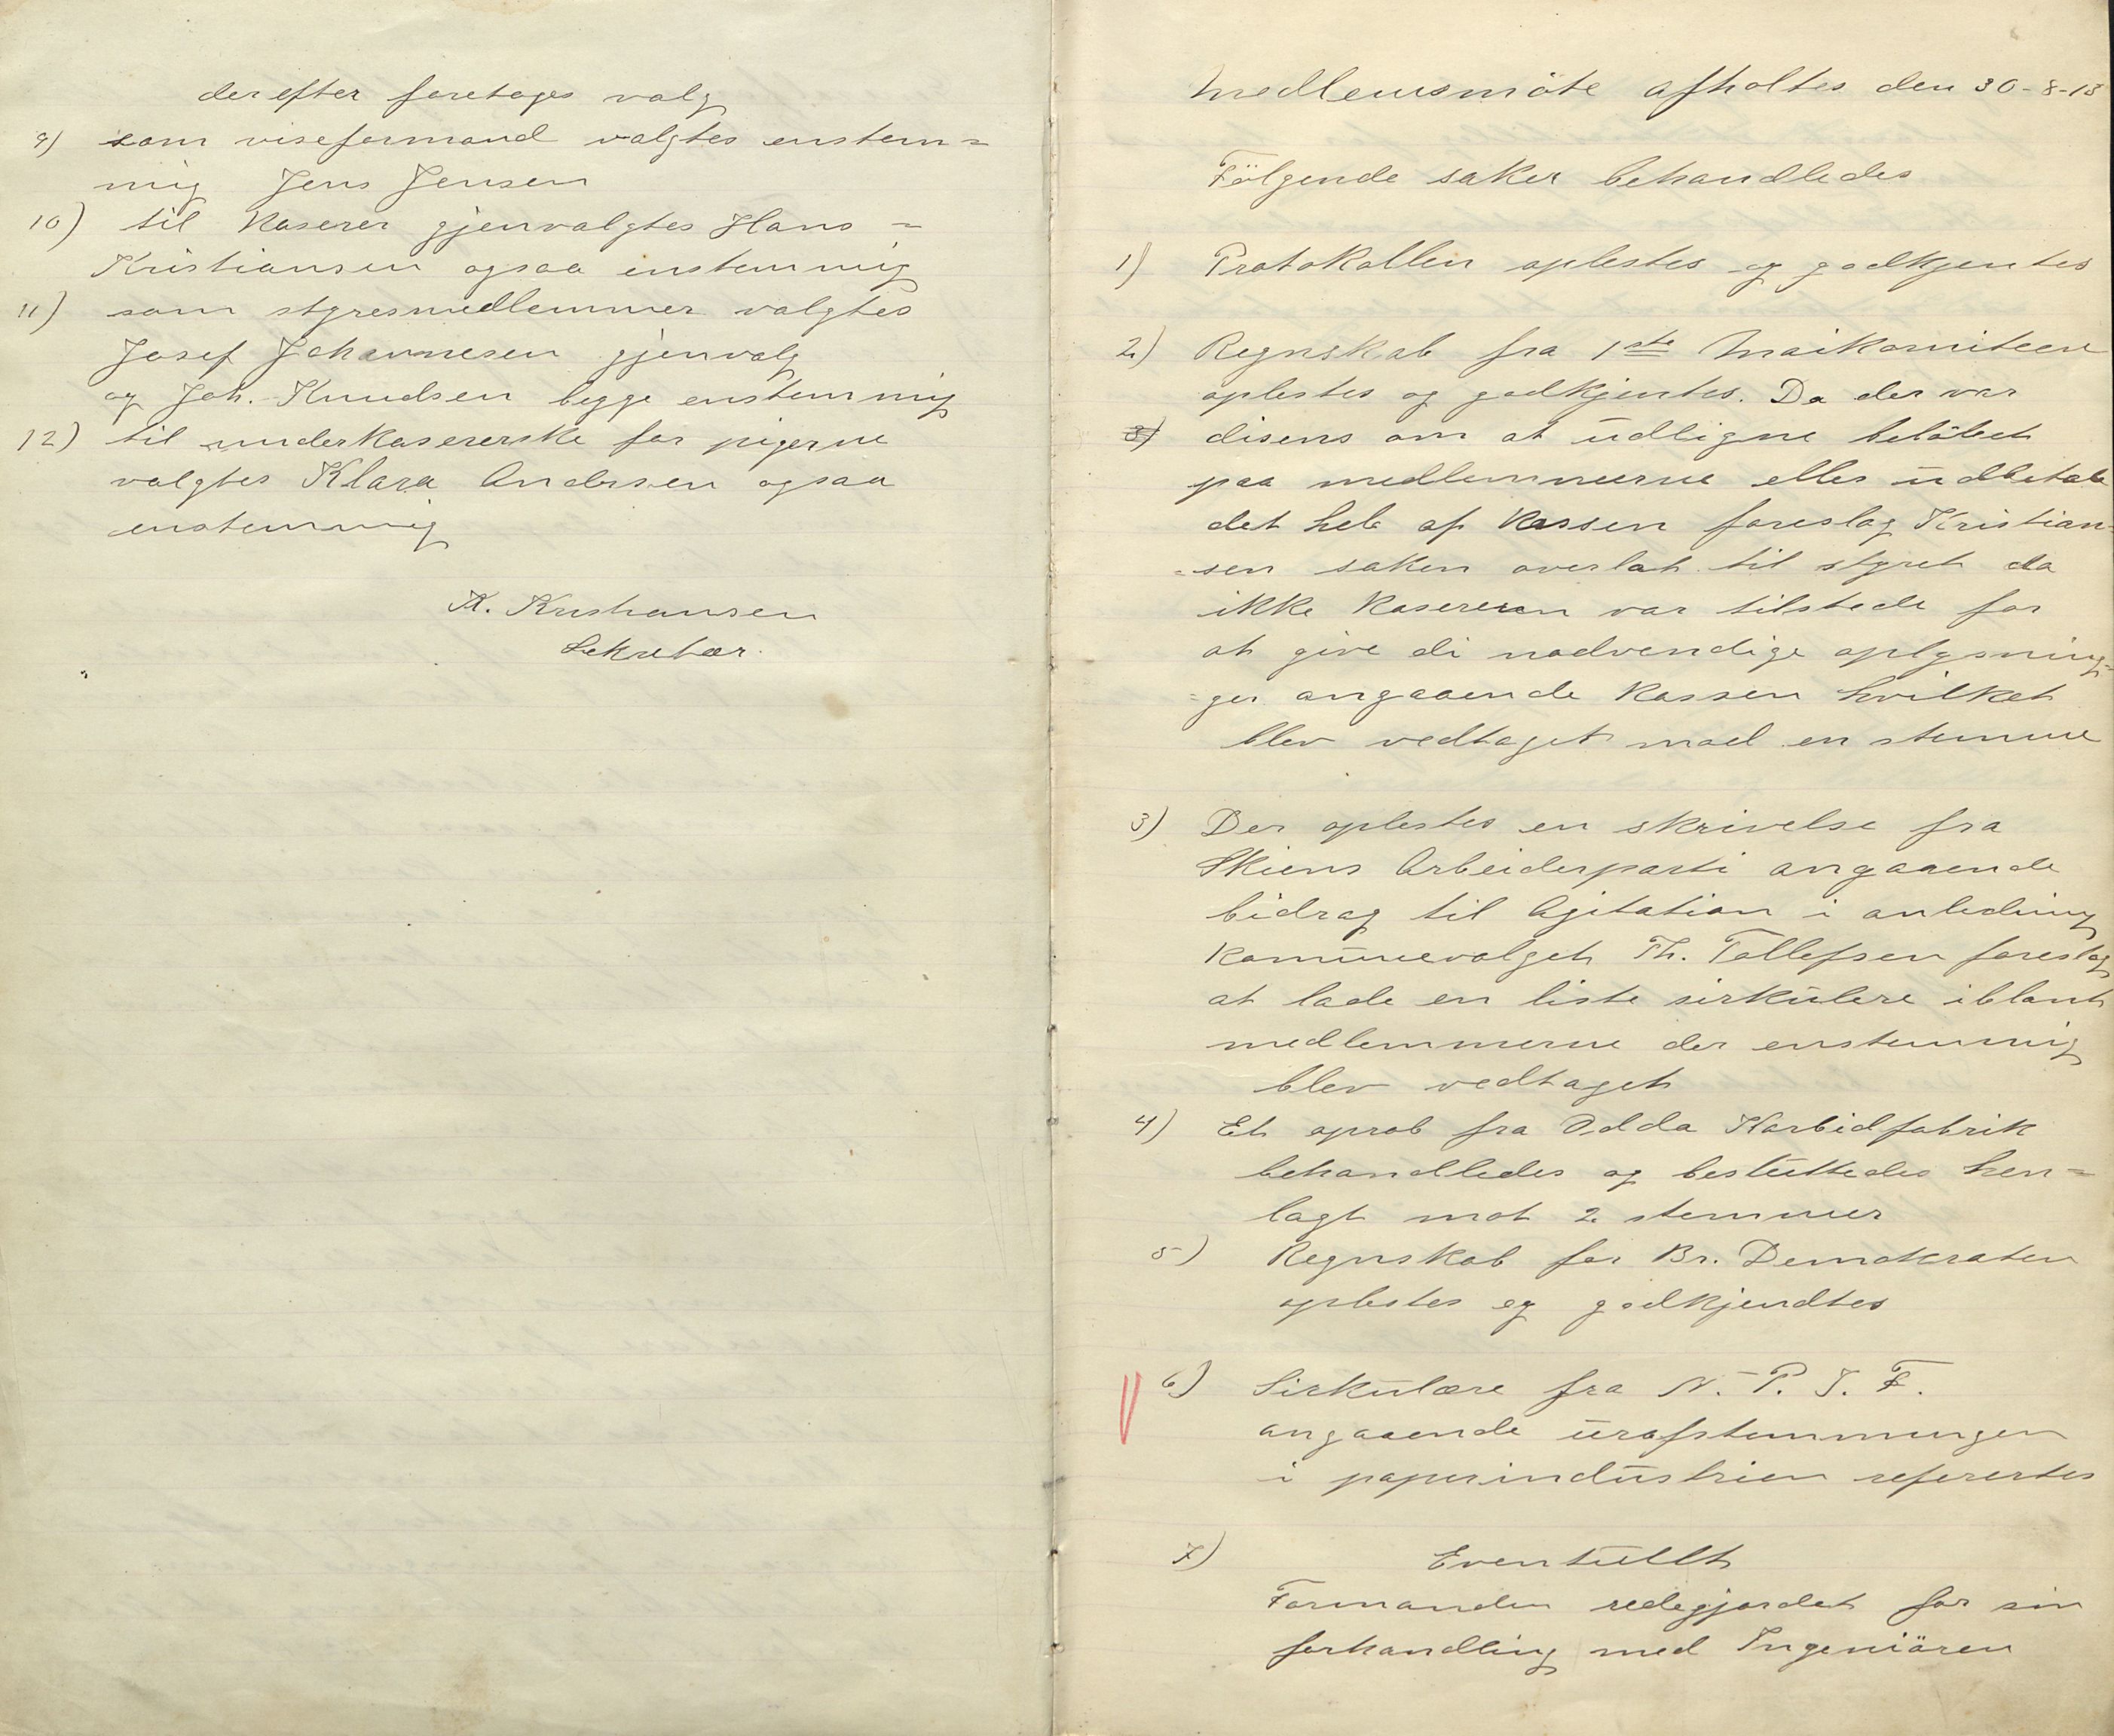 derefter foretages valg
9) som viseformand valgtes enstem=
mig Jens Jensen
10) til Kaserer gjenvalgtes Hans =
Kristiansen ogsaa enstemmig
11) som styresmedlemmer valgtes
Josef Johannesen gjenvalg
og Joh. Knudsen begge enstemmig
12) til underkasererske for pigerne
valgtes Klara Andersen ogsaa
enstemmig
K. Kristiansen
Sekretær.
Medlemsmöte afholtes den 30-8-13
Fölgende saker behandledes
1) Protokollen oplestes og godkjentes
2) Regnskab fra 1ste Maikomiteen
oplestes og godkjentes. Da der var
3) disens om at udligne belöbet
paa medlemmerne eller udbetale
det hele af Kassen foreslog Kristian=
=sen saken overlat til styret da
ikke Kasereren var tilstede for
at give di nødvendige oplysning=
=ger angaaende Kassen hvilket
blev vedtaget mod en stemme
3) Der oplestes en skrivelse fra
Skiens Arbeiderparti angaaende
bidrag til Agitation i anledning
Komunevalget Th. Tollefsen foreslog
at lade en liste sirkulere iblant
medlemmerne der enstemmig
blev vedtaget
4) Et oprob fra Odda Karbidfabrik
behandledes og besluttedes hen=
lagt mot 2 stemmer
5) Regnskab for Br. Demokraten
oplestes og godkjendtes
6) Sirkulære fra N. P. I. F.
angaaende uravstemmingen
i papirindustrien referertes
7) Eventullt
Formanden redegjordet for sin
forhandling med Ingeniören